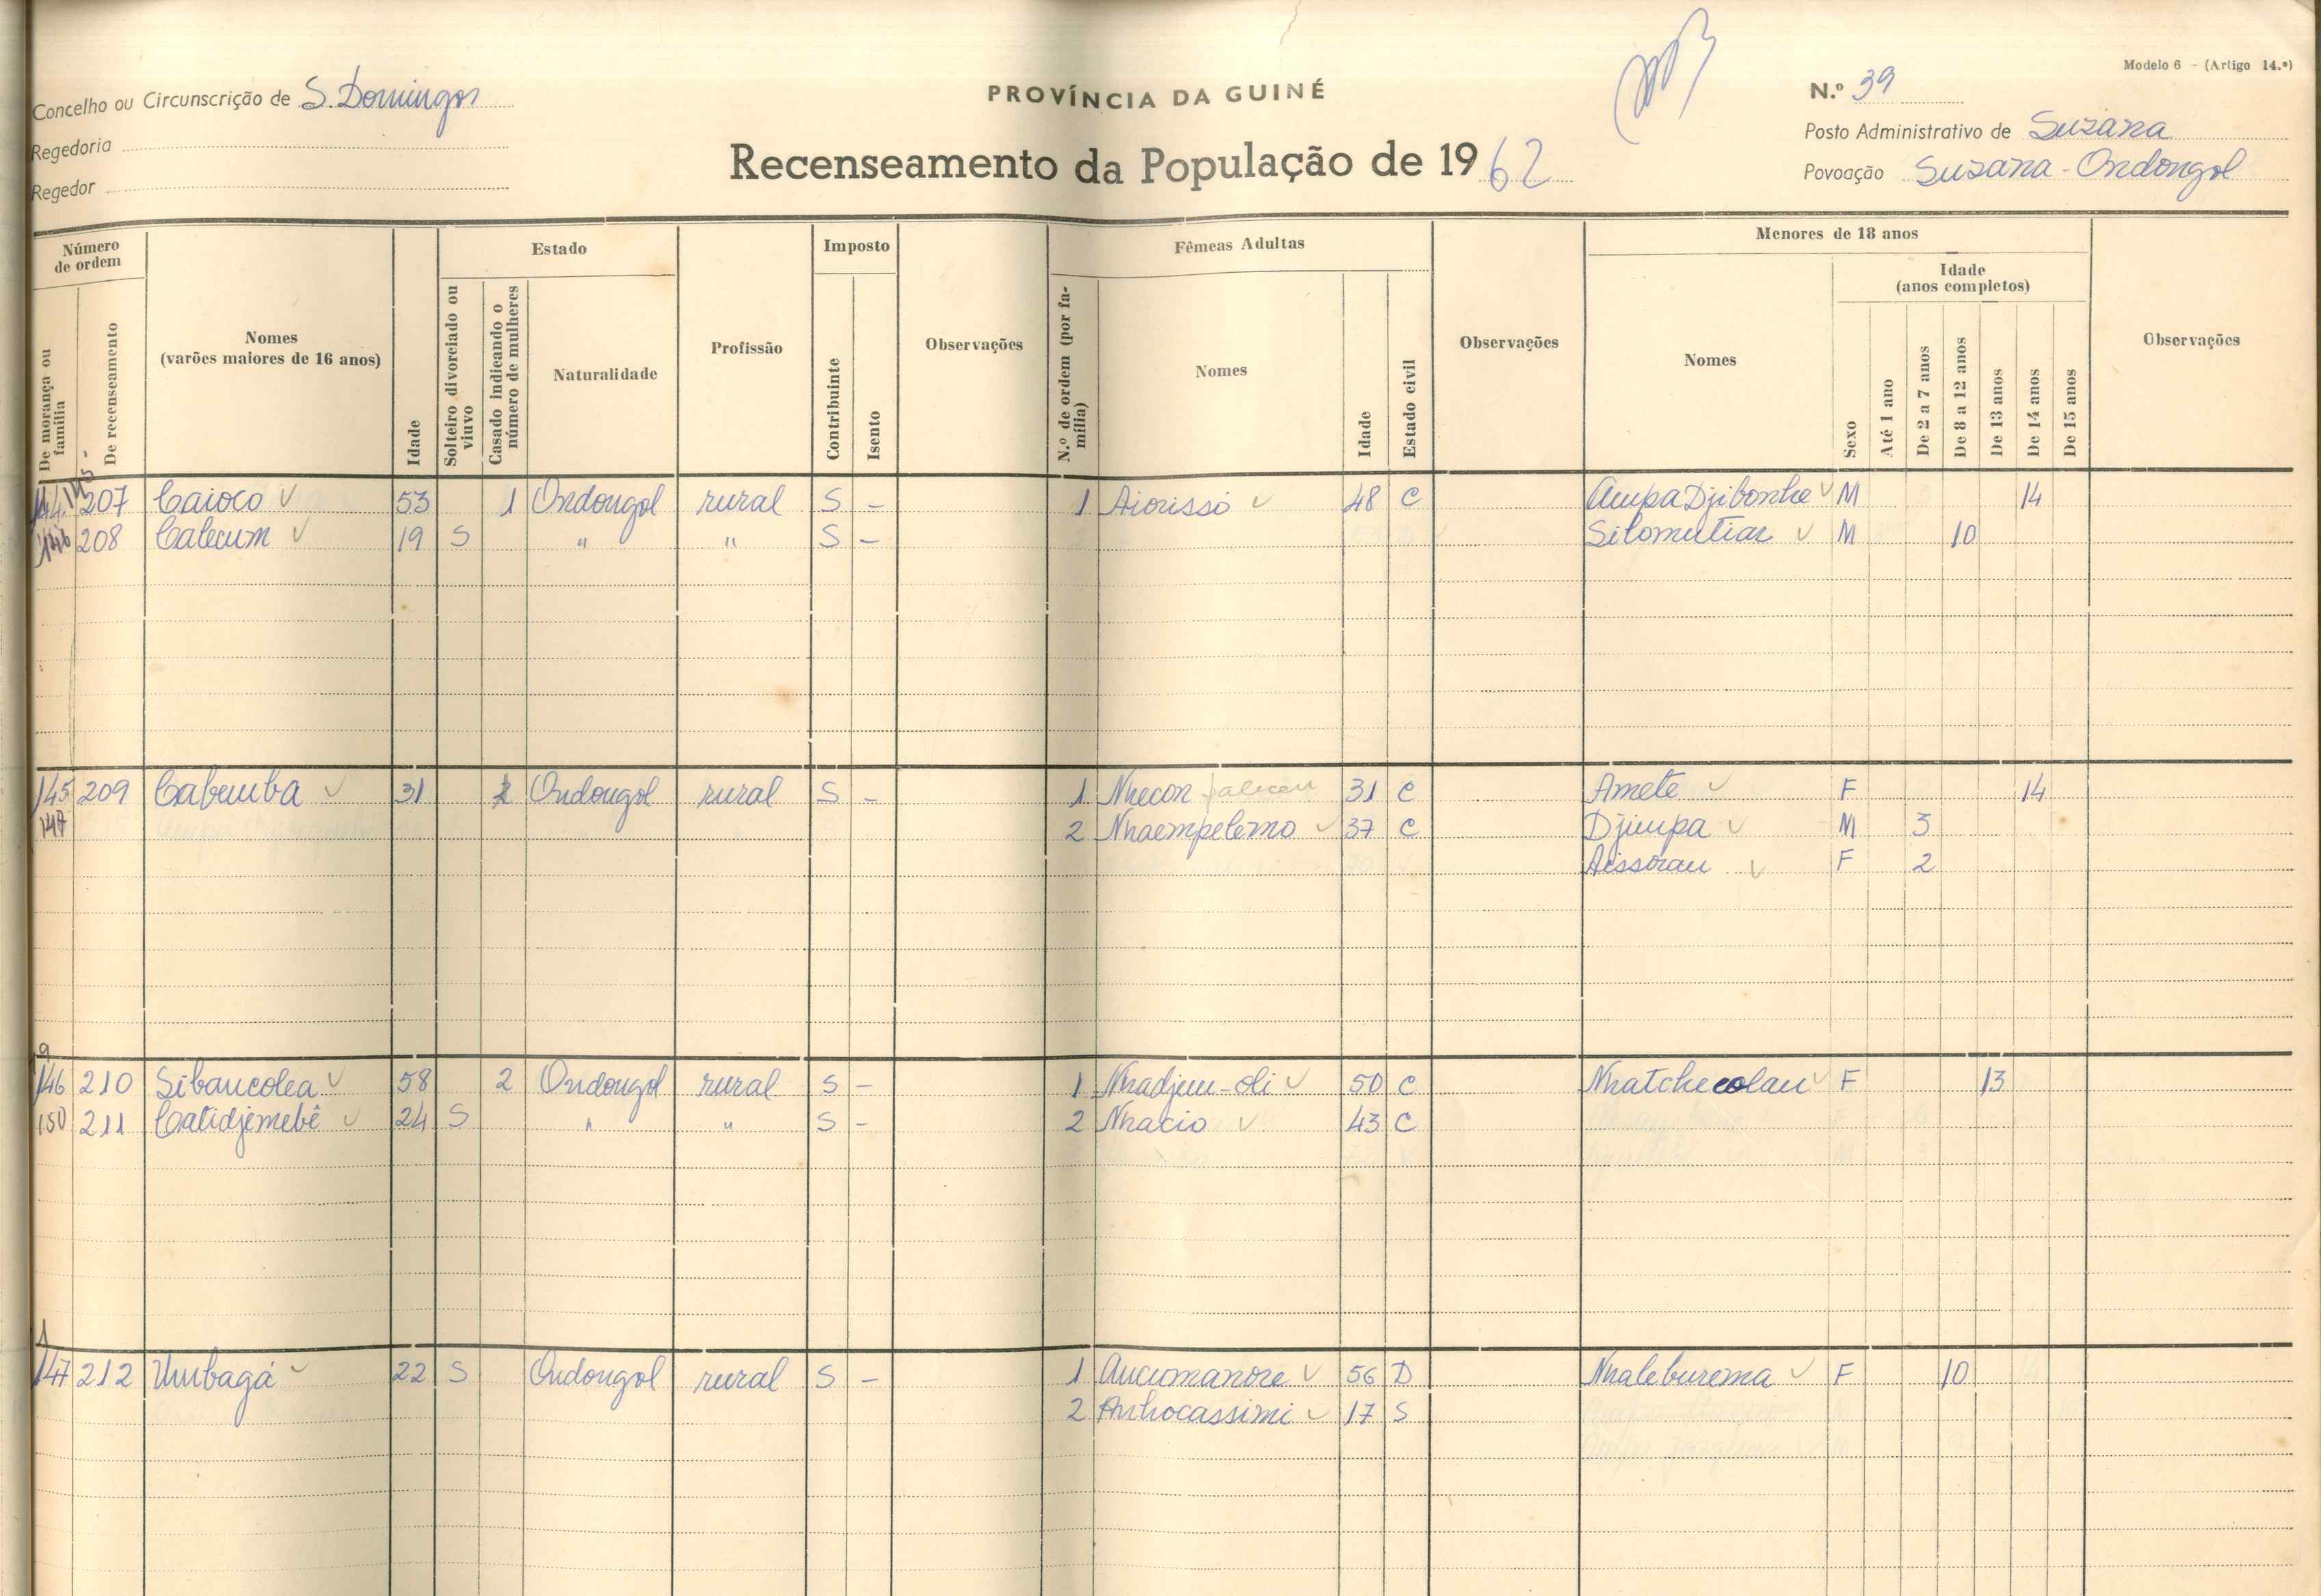 Modelo 6 - (Artigo 14.º)
Concelho ou Circunscrição de S. Domingos
PROVÍNCIA DA GUINÉ
N.º 39
Regedoria
Posto Administrativo de Suzana
Regedor
Recenseamento da População de 1962
Povoação Suzana - Ondongol
Número de ordem
De morança ou família
De recenseamento
Nomes
(varões maiores de 16 anos)
Idade
Estado
Solteiro divorciado ou viuvo
Casado indicando o número de mulheres
Naturalidade
Profissão
Imposto
Contribuinte
Isento
Observações
Fêmeas Adultas
N.º de ordem (por família)
Nomes
Idade
Estado civil
Observações
Menores de 18 anos
Nomes
Sexo
Idade
(anos completos)
Até 1 ano
De 2 a 7 anos
De 8 a 12 anos
De 13 anos
De 14 anos
De 15 anos
Observações
144 145 207 Caioco 53 1 Ondongol rural S - 1 Aiorissó 48 C AmpaDjibonhe M 14
146 208 Calecum 19 S " " S - Silomutiar M 10
145 209 Cabemba 31 Ondongol rural S - 1 Nhecon faleceu 31 C Amete F 14
147 2 Nhaempelemo 37 C Djimpa M 3
Aissorau F 2
9
146 210 Sibancolea 58 2 Ondongol rural S - 1 Nhadjem-oli 50 C Nhatchecolau F 13
150 211 Catidjemebê 24 S " " S - 2 Nhacio 43 C
1
147 212 Umbagá 22 S Ondongol rural S - 1 Aucumanore 56 D Nhaleburema F 10
2 Anhocassimi 17 S